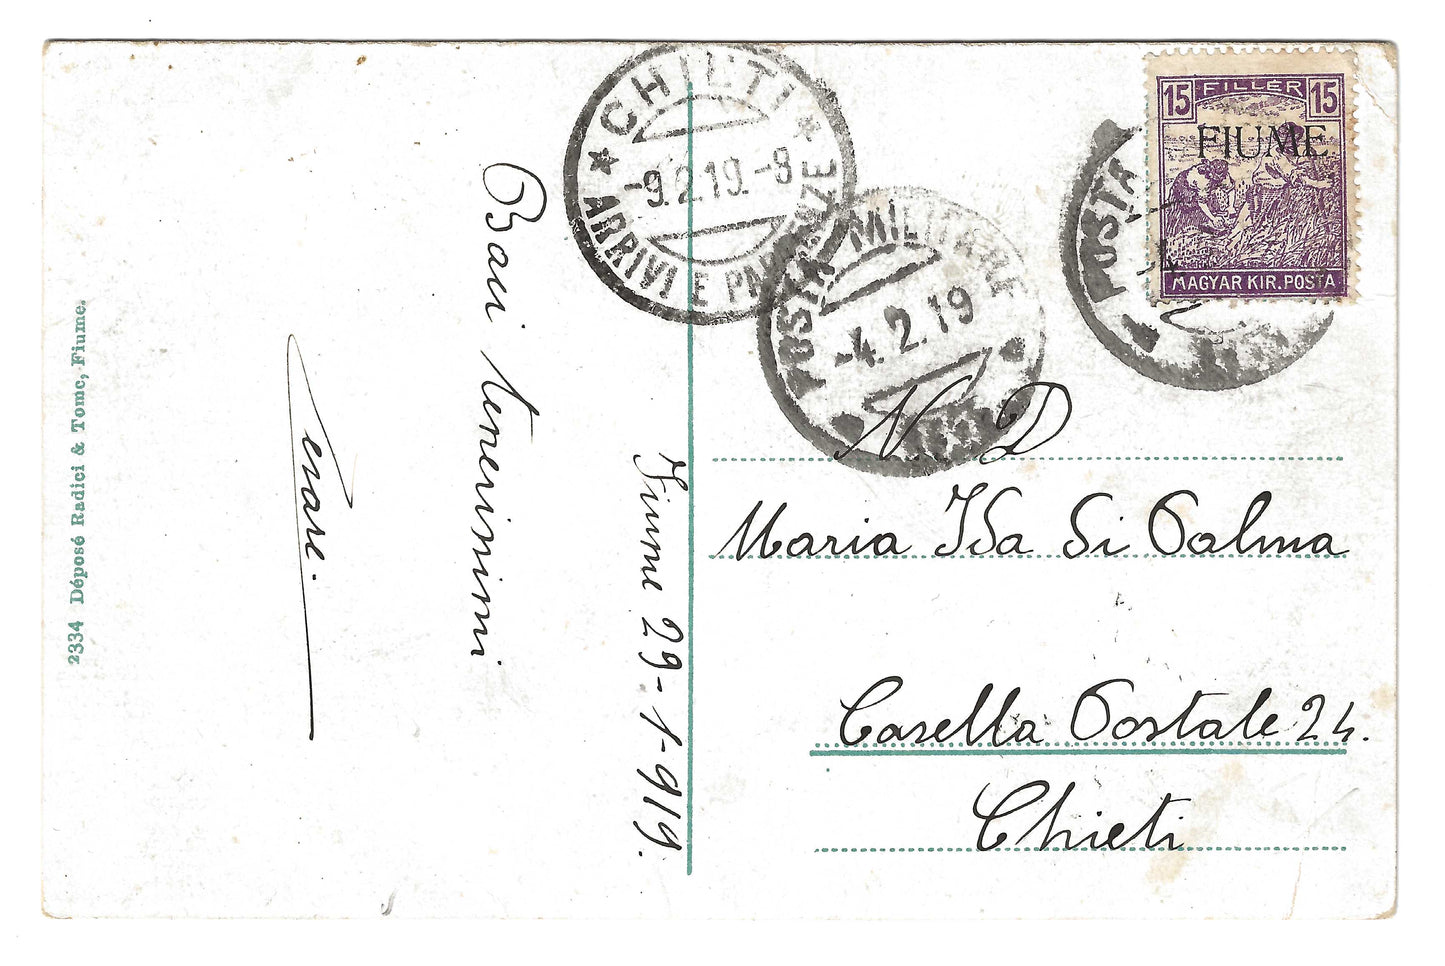 2334 Déposé Radici & Tomc, Fiume.
Cesare.
Baci tenerissimi
Fiume 29-1-919.
CHIETI
-9.2.19.-8
ARRIVI E PARTENZE
POSTA MILITARE
-4.2.19
POSTA
15 FILLER 15
FIUME
MAGYAR KIR. POSTA
N. D
Maria Ida Di Palma
Casella Postale 24.
Chieti